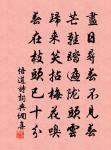 盡日尋春不見春
芒鞋踏遍隴頭雲
歸來笑拈梅花嗅
春在枝頭已十分
悟道詩